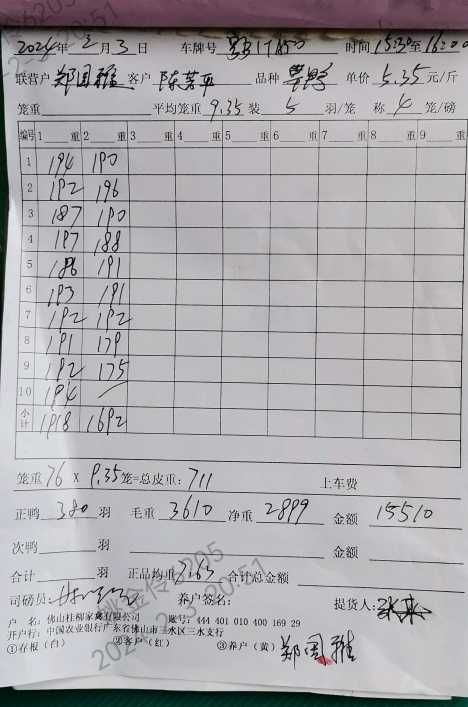 2024年 2月3日 车牌号 时间 15:30至16:00
联营户 郑国雅 客户 陈芳平 品种 单价 5.35 元/斤
笼重 平均笼重 9.35 装 5 羽/笼 称 4 笼/磅
编号 1 重 2 重 3 重 4 重 5 重 6 重 7 重 8 重 9 重
1 194 190
2 192 196
3 187 190
4 197 188
5 186 191
6 193 191
7 192 192
8 191 179
9 192 175
10 194 /
小计 1918 1692
笼重 76 x 9.35 笼=总皮重: 711 上车费
正鸭 380 羽 毛重 3610 净重 2899 金额 15510
次鸭 羽 金额
合计 羽 正品均重 7.63 合计总金额
司磅员: 养户签名: 提货人:
户 名: 佛山桂柳家禽有限公司 账号: 444 401 010 400 169 29
开户行: 中国农业银行广东省佛山市三水区三水支行
①存根(白) ②客户(红) ③养户(黄) 郑国雅